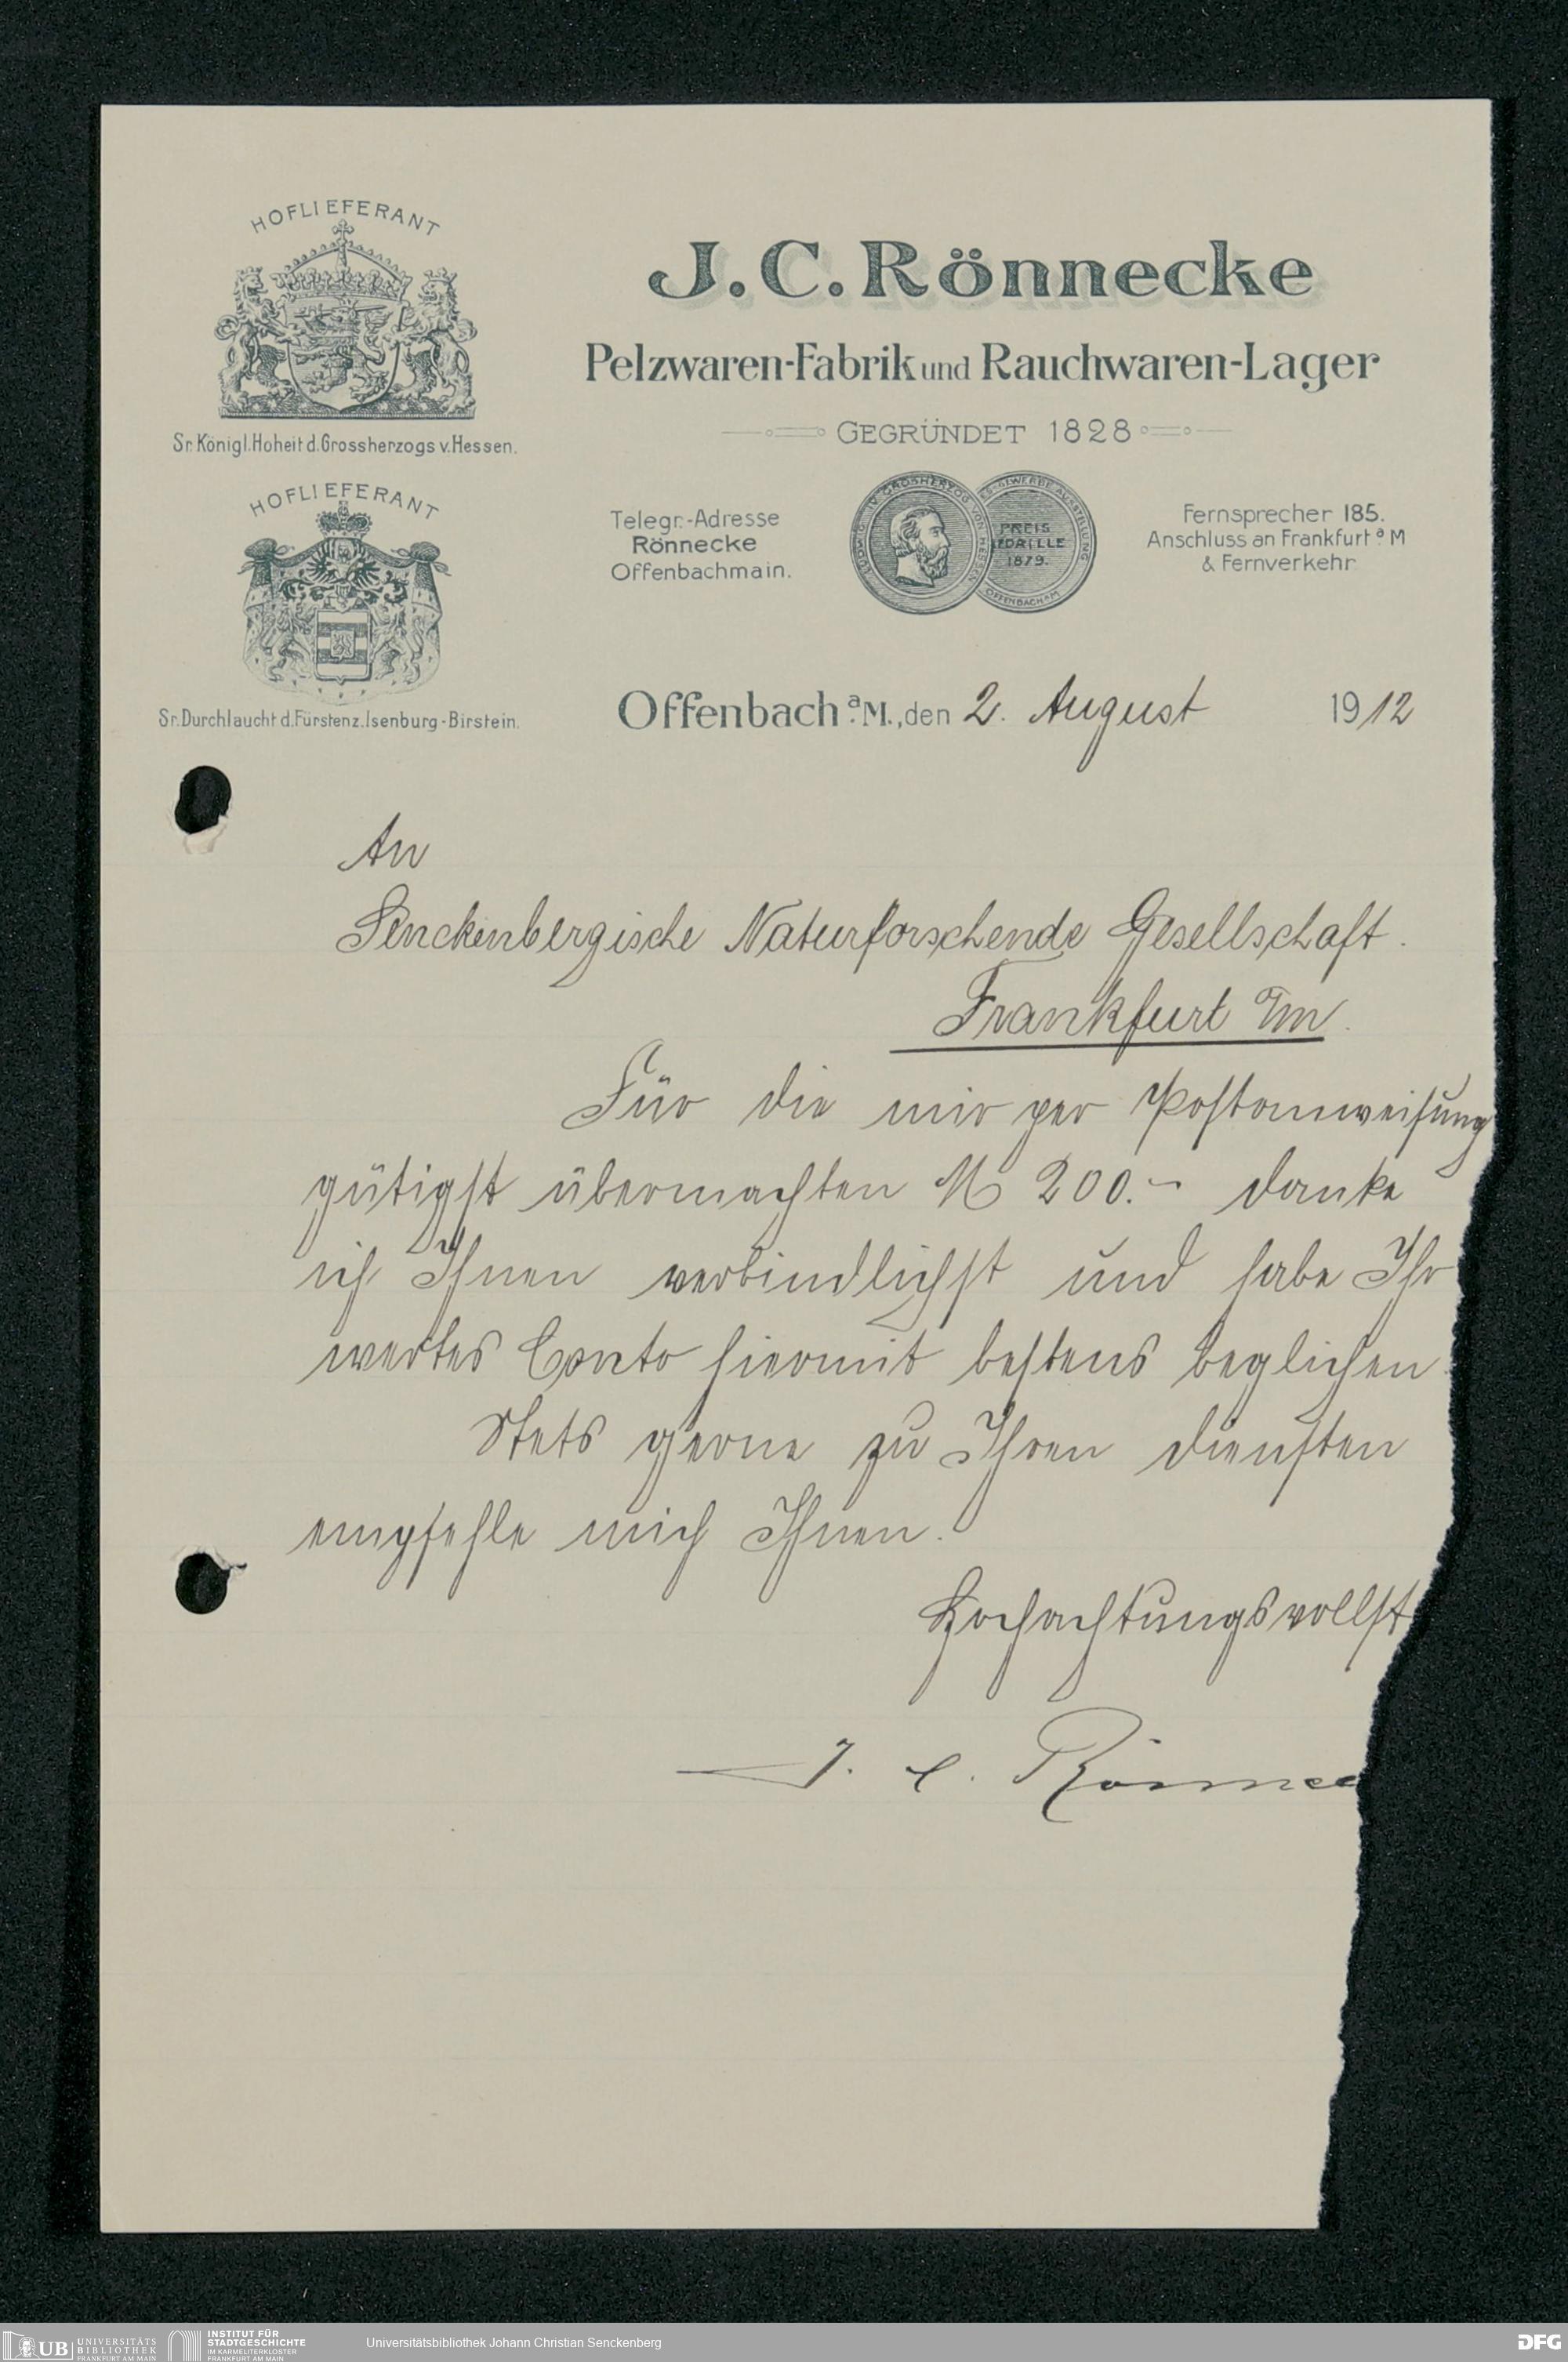 HOFLIEFERANT
Sr. Königl. Hoheit d. Grossherzogs v. Hessen.
HOFLIEFERANT
Sr. Durchlaucht d. Fürsten z. Isenburg-Birstein.
J. C. Rönnecke
Pelzwaren-Fabrik und Rauchwaren-Lager
GEGRÜNDET 1828
Telegr.-Adresse
Rönnecke
Offenbachmain.
LUDWIG IV GROSHERZOG VON HESSEN
GEWERBE AUSSTELLUNG
PREIS
MEDAILLE
1879.
OFFENBACH a/M
Fernsprecher 185.
Anschluss an Frankfurt a M
& Fernverkehr
Offenbach a. M., den 2. August 1912
An
Senckenbergische Naturforschende Gesellschaft.
Frankfurt a/m.
Für die mir per Postanweisung
gütigst übermachten M 200.- danke
ich Ihnen verbindlichst und habe Ihr
wertes Conto hiermit bestens beglichen.
Stets gerne zu Ihren diensten
empfehle mich Ihnen.
Hochachtungsvollst
J. C. Rönnec
UB UNIVERSITÄTS
BIBLIOTHEK
FRANKFURT AM MAIN
INSTITUT FÜR
STADTGESCHICHTE
IM KARMELITERKLOSTER
FRANKFURT AM MAIN
Universitätsbibliothek Johann Christian Senckenberg
DFG